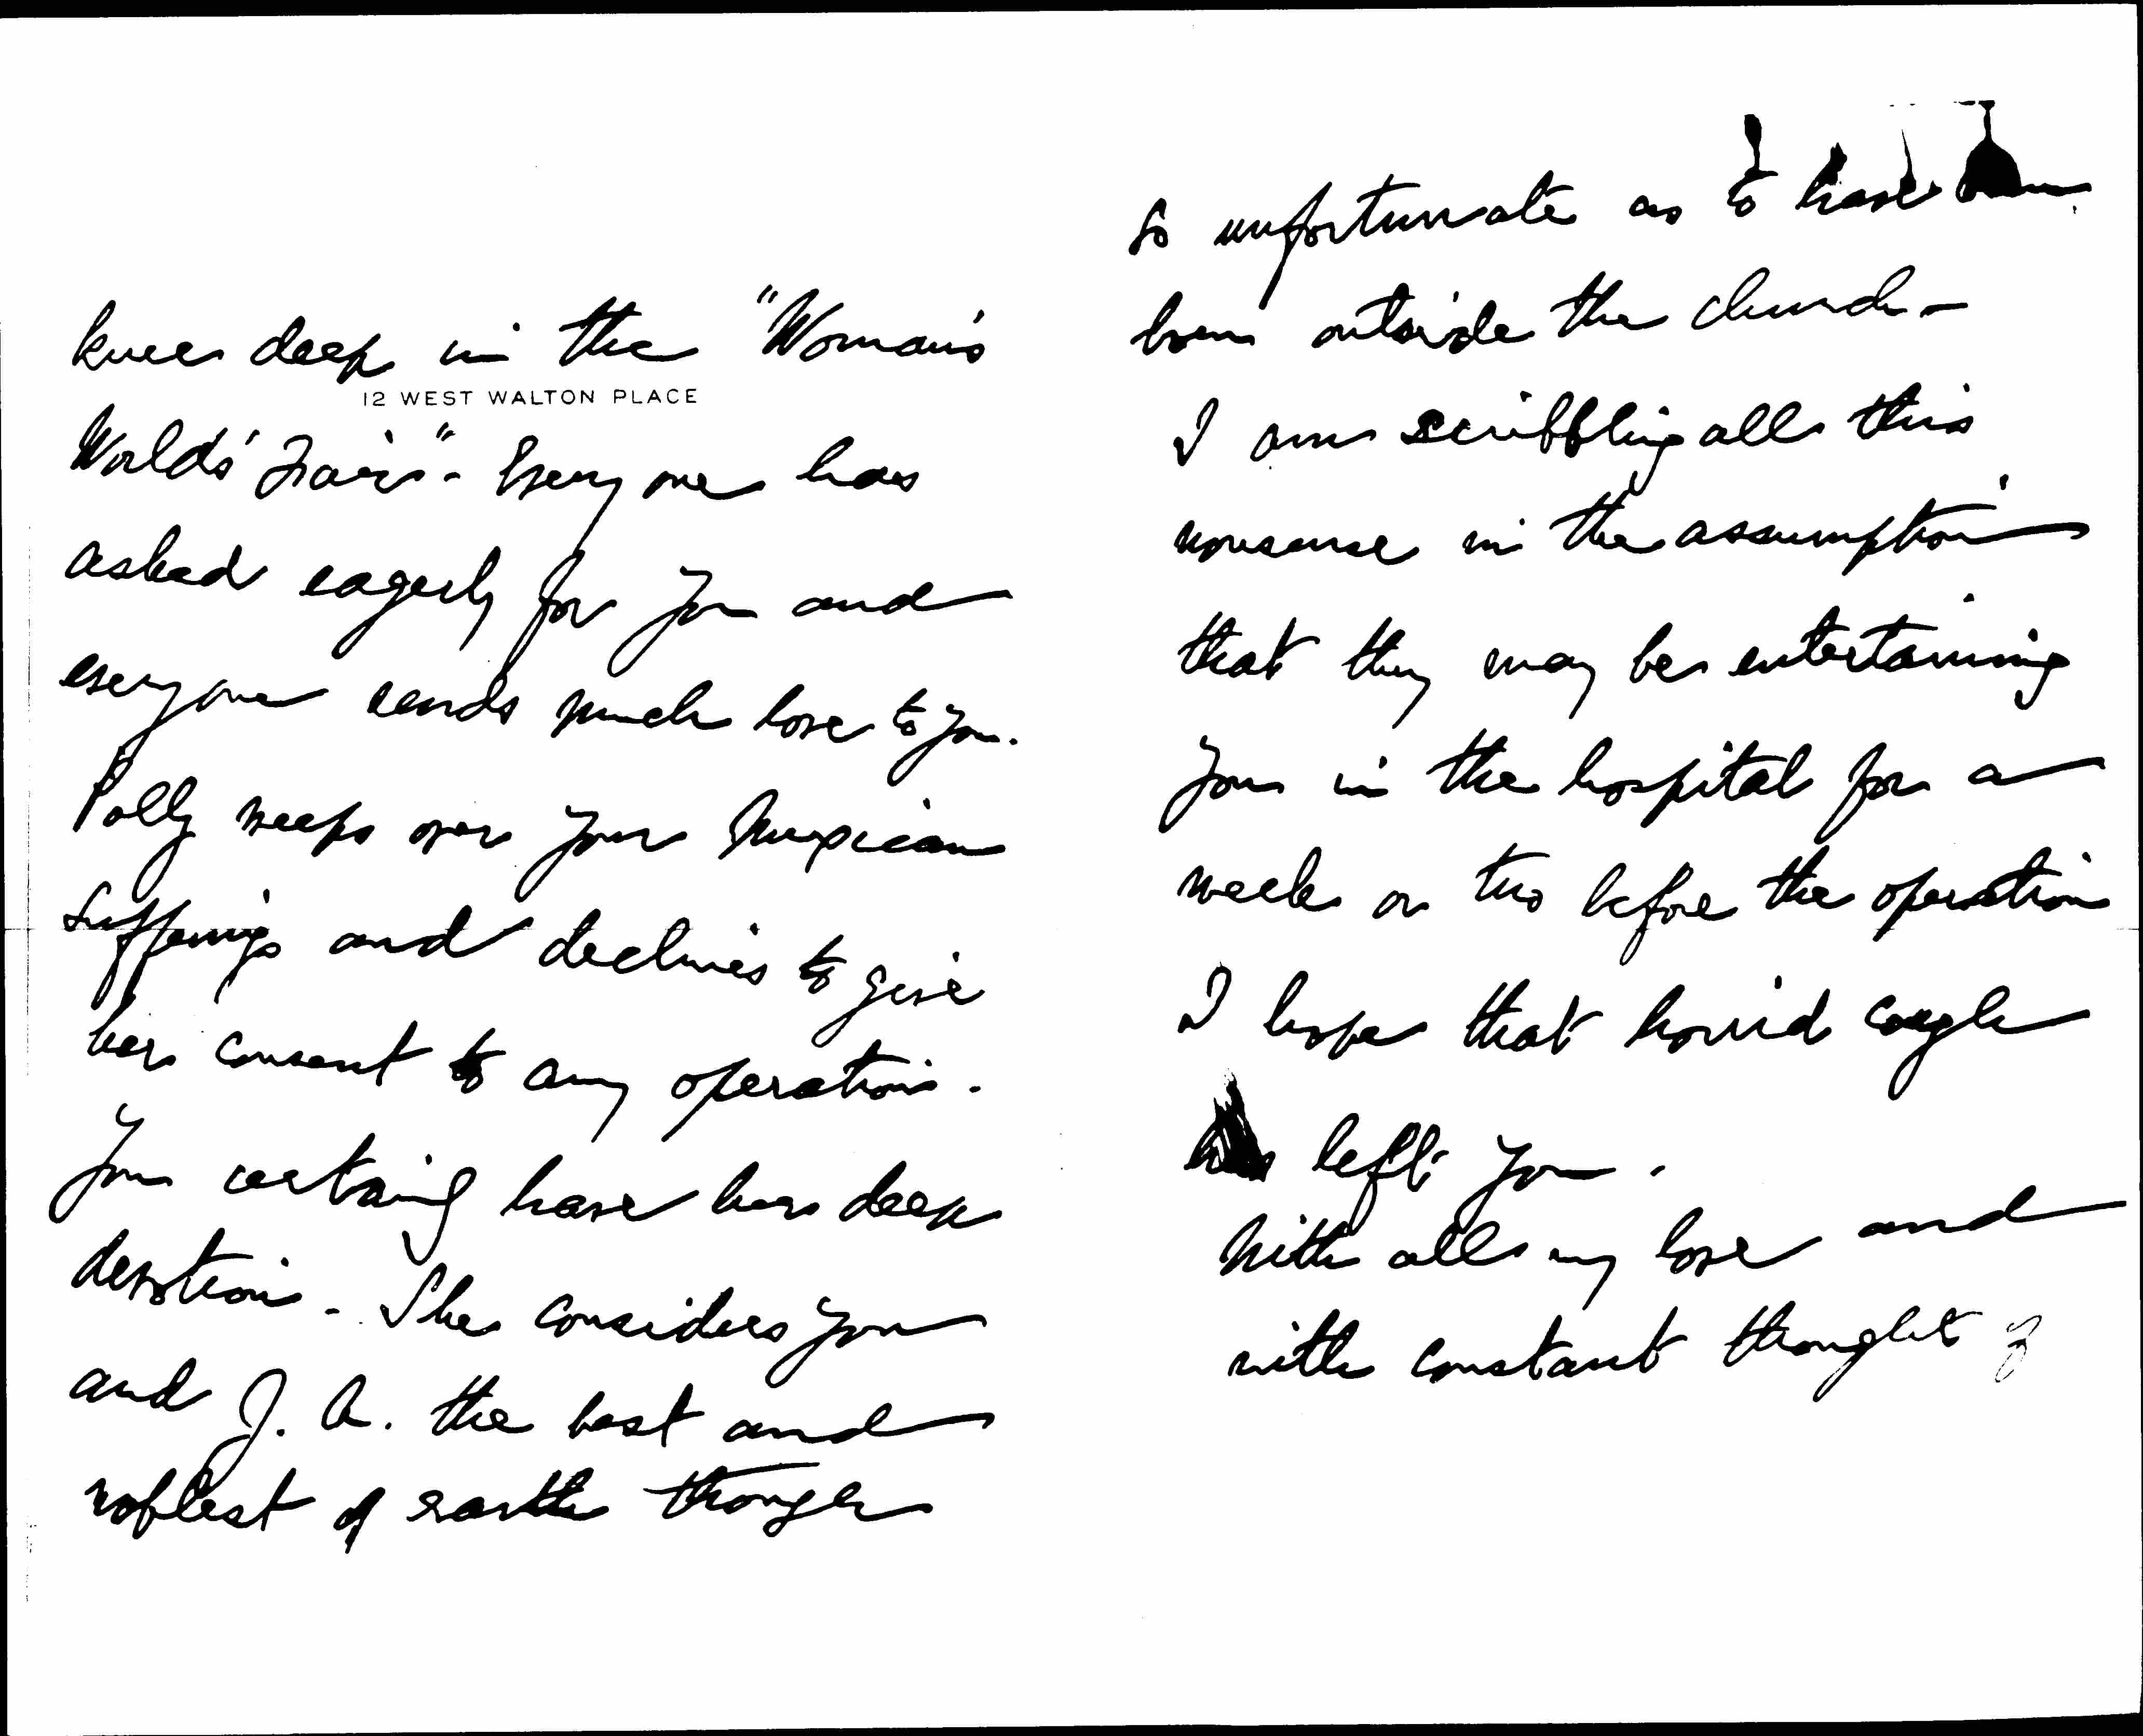 knee deep in the "Woman's
12 WEST WALTON PLACE
World's Fair" - Every one has
asked eagerly for you and
everyone sends much love to you.
Polly weeps over your Mexican
sufferings and declines to give
her consent to any operation.
You certainly have her deep
devotion - She considers you
and J. A. the best and
noblest of earth though
so unfortunate as to have been
born outside the church -
I am scribbling all this
nonsense in the assumption
that they may be entertaining
you in the hospital for a
week or two before the operation
I hope that horrid cough
has left you.
With all my love and
with constant thought of